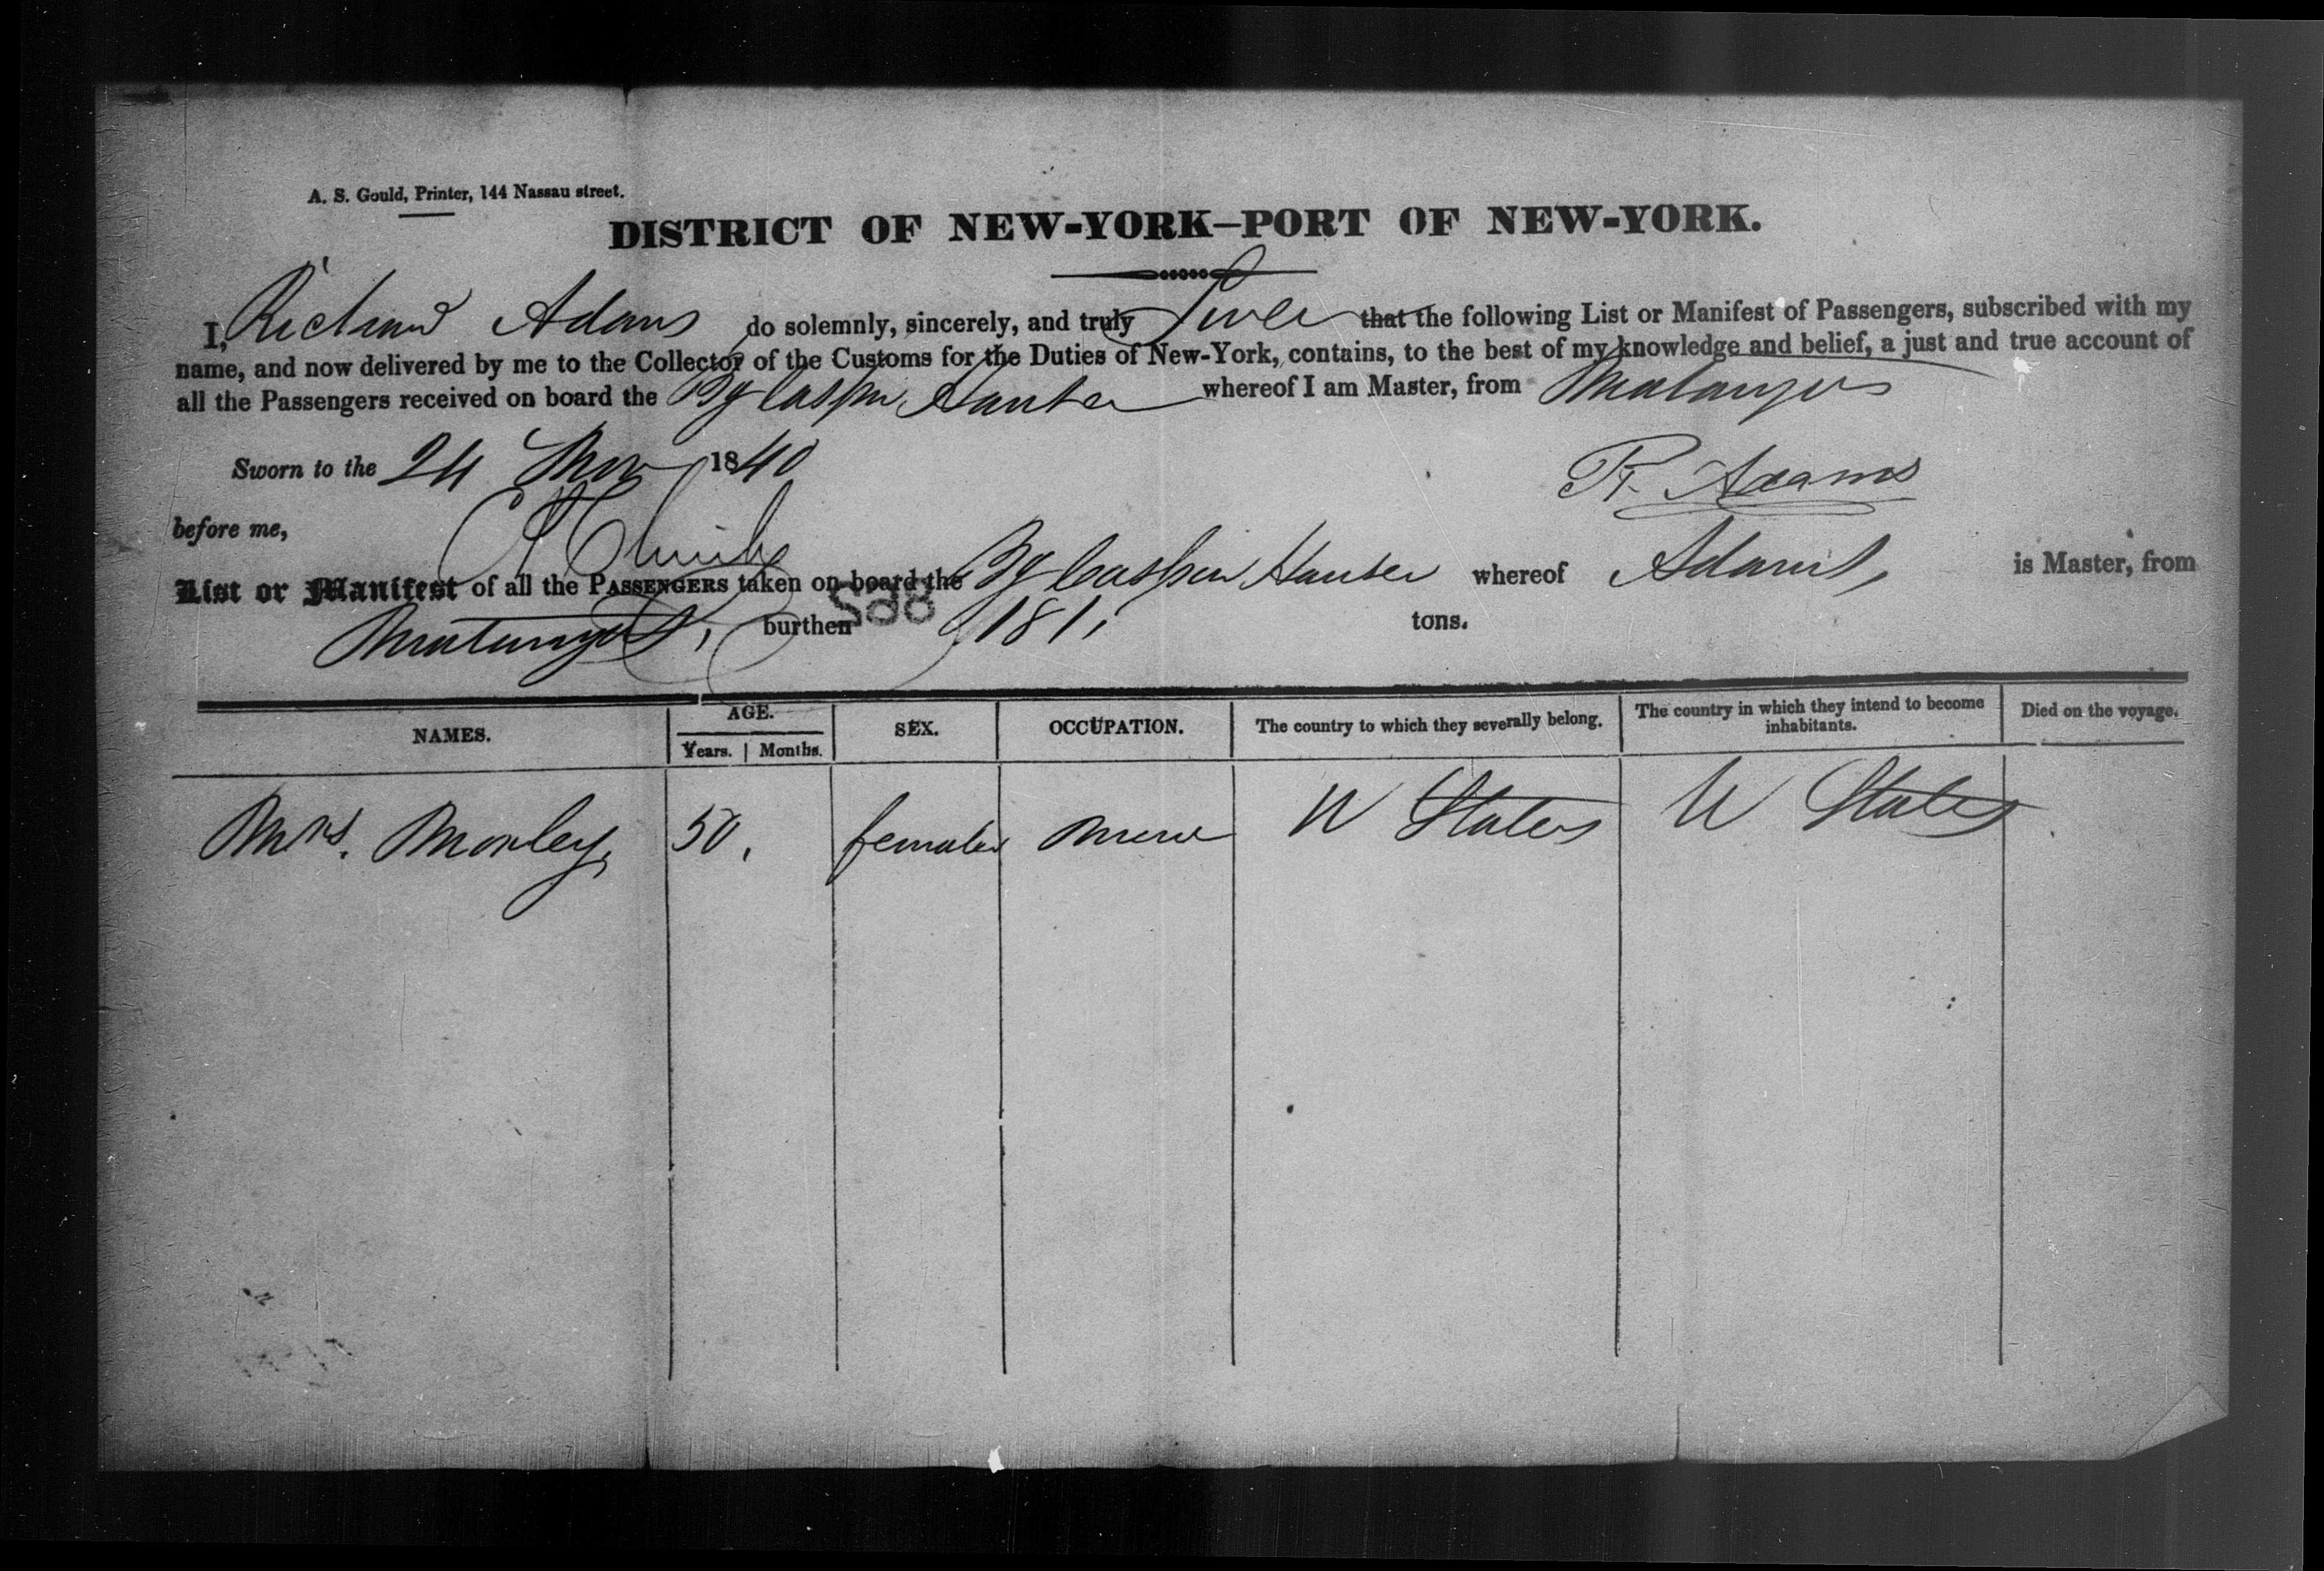 A. S. Gould, Printer, 144 Nassau street.
DISTRICT OF NEW-YORK—PORT OF NEW-YORK.
I, Richard Adams do solemnly, sincerely, and truly Swear that the following List or Manifest of Passengers, subscribed with my
name, and now delivered by me to the Collector of the Customs for the Duties of New-York, contains, to the best of my knowledge and belief, a just and true account of
all the Passengers received on board the Bg Casper Hauser whereof I am Master, from Matanzas
Sworn to the 24 Nov 1840
R. Adams
before me,
List or Manifest of all the PASSENGERS taken on board the Bg Casper Hauser whereof Adams, is Master, from
Matanzas, burthen 181, tons.
NAMES. AGE. SEX. OCCUPATION. The country to which they severally belong. The country in which they intend to become inhabitants. Died on the voyage.
Years. | Months.
Mrs. Morley, 50, female U States U States